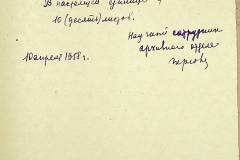 В настоящей единице
10 (десять) листов.
Научный сотрудник
архивного отдела
10 апреля 1958 г.